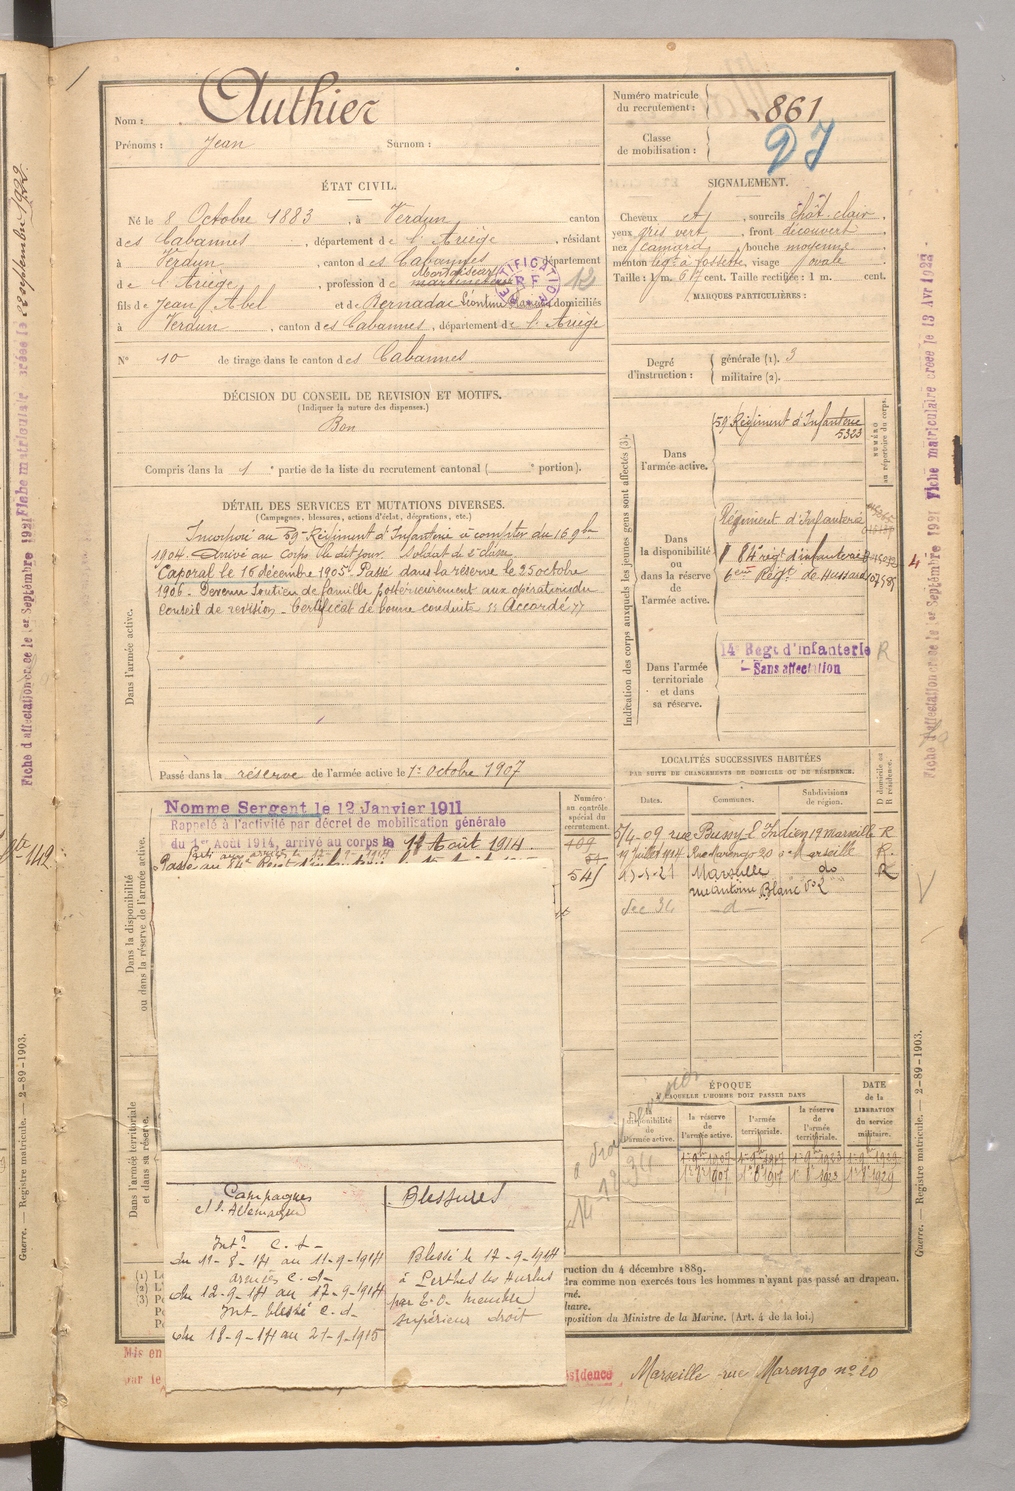 Nom : Authier
Prénoms : Jean Surnom :
Numéro matricule du recrutement : 861
Classe de mobilisation : 27
ÉTAT CIVIL.
Né le 8 Octobre 1883, à Verdun canton
des Cabannes, département de l'Ariège, résidant
à Verdun, canton des Cabannes département
de l'Ariège, profession de
RECTIFICATION RF
12
fils de Jean Abel et de Bernadac Léontine domiciliés
à Verdun, canton des Cabannes, département de l'Ariège
N° 10 de tirage dans le canton des Cabannes
SIGNALEMENT.
Cheveux ct, sourcils chât-clair.
yeux gris vert, front découvert
nez camard, bouche moyenne
menton leg. à fossette, visage ovale
Taille : 1 m. 67 cent. Taille rectifiée : 1 m. cent.
MARQUES PARTICULIÈRES :
Degré d'instruction :
générale (1). 3
militaire (2).
DÉCISION DU CONSEIL DE REVISION ET MOTIFS.
(Indiquer la nature des dispenses.)
Bon
Compris dans la 1 e partie de la liste du recrutement cantonal ( e portion).
DÉTAIL DES SERVICES ET MUTATIONS DIVERSES.
(Campagnes, blessures, actions d'éclat, décorations, etc.)
Dans l'armée active.
Incorporé au 59e Régiment d'Infanterie à compter du 16 9bre
1904. Arrivé au Corps le dit jour. Soldat de 2e classe.
Caporal le 16 décembre 1905. Passé dans la réserve le 25 octobre
1906. Devenu soutien de famille postérieurement aux opérations du
Conseil de revision. Certificat de bonne conduite "Accordé"
Passé dans la réserve de l'armée active le 1er octobre 1907
Indication des corps auxquels les jeunes gens sont affectés (3).
NUMÉRO au répertoire du corps.
Dans l'armée active.
59 Régiment d'Infanterie
5323
Dans la disponibilité ou dans la réserve de l'armée active.
Régiment d'Infanterie
84e régt d'infanterie
6eme Régt de Hussards
Dans l'armée territoriale et dans sa réserve.
14e Regt d'Infanterie R
Sans affectation
Dans la disponibilité ou dans la réserve de l'armée active.
Nomme Sergent le 12 Janvier 1911
Rappelé à l'activité par décret de mobilisation générale
du 1er Août 1914, arrivé au corps le 11 Août 1914
Numéro au contrôle spécial du recrutement.
109
541
LOCALITÉS SUCCESSIVES HABITÉES
PAR SUITE DE CHANGEMENTS DE DOMICILE OU DE RÉSIDENCE.
Dates. Communes. Subdivisions de région. D domicile ou R résidence.
5/4-09 rue Bussy l'Indien 19 Marseille R
19 Juillet 1914 Rue Marengo 20 Marseille R.
Marseille do R
rue Antoine Blanc
Dec 36 - d -
Dans l'armée territoriale et dans sa réserve.
ÉPOQUE
À LAQUELLE L'HOMME DOIT PASSER DANS
la disponibilité de l'armée active.
la réserve de l'armée active.
l'armée territoriale.
la réserve de l'armée territoriale.
DATE de la LIBÉRATION du service militaire.
1er 8bre 1907 1er 8bre 1917 1er 8bre 1923 1er 8bre 1929
Campagnes
c/ l'Allemagne
Intr C. d-
du 11-8-14 au 11-9-1914
armées C. d-
du 12-9-14 au 17-9-1914
Int. blessé C. d-
du 18-9-14 au 21-9-1915
Blessures
Blessé le 17-9-1914
à Perthes les Hurlus
par E. O. membre
supérieur droit
(1)
(2)
(3)
ruction du 4 décembre 1889.
dra comme non exercés tous les hommes n'ayant pas passé au drapeau.
rné.
liaire.
sposition du Ministre de la Marine. (Art. 4 de la loi.)
Mis en
par le
sidence Marseille rue Marengo n° 20
Guerre. — Registre matricule. — 2-89-1903.
Guerre. — Registre matricule. — 2-89-1903.
Fiche d'affectation créée le 1er Septembre 1921 Fiche matriculaire créée le 22 septembre 1922
Fiche d'affectation créée le 1er Septembre 1921 Fiche matriculaire créée le 13 Avr 1923